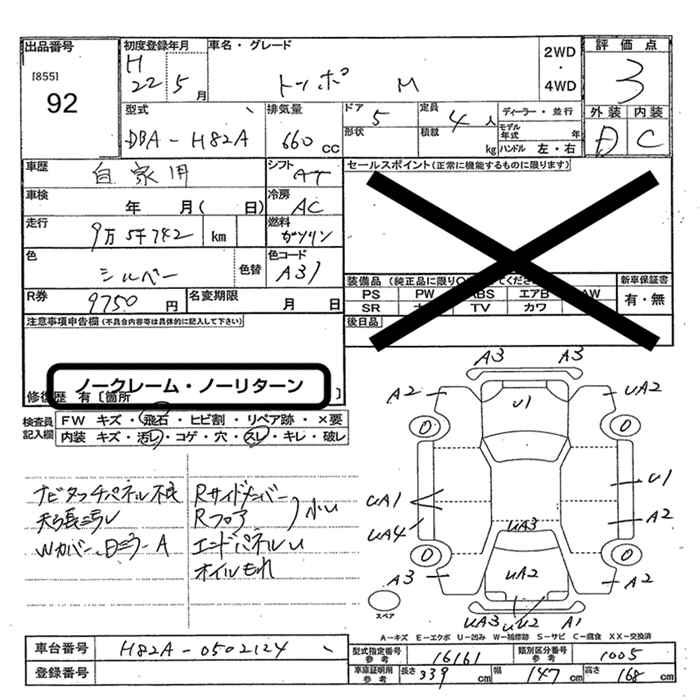 出品番号
[855]
92
初度登録年月
H
22 5月
車名・グレード
トッポ M
2WD
・
4WD
評価点
3
外装 内装
D C
型式
DBA-H82A
排気量
660 cc
ドア
5
形状
定員
4人
積載
kg
ディーラー・並行
モデル年式 年
ハンドル 左・右
車歴
自家用
シフト
AT
セールスポイント(正常に機能するものに限ります)
車検
年 月( 日)
冷房
AC
走行
9万5千742 km
燃料
ガソリン
色
シルバー
色替
色コード
A31
装備品(純正品に限り
PS PW ABS エアB AW
SR TV カワ
新車保証書
有・無
後日品
R券
9750円
名変期限
月 日
注意事項申告欄(不具合内容等は具体的に記入して下さい)
ノークレーム・ノーリターン
修復歴 有[箇所 ]
検査員
記入欄
FW キズ・飛石・ヒビ割・リペア跡・×要
内装 キズ・汚レ・コゲ・穴・スレ・キレ・破レ
ナビタッチパネル不良
Wカバー、
Rサイドメンバー
Rフロア
小U
エンドパネルU
オイルもれ
A3 A3
A2 U1 UA2
0 0
UA1 U1
UA4 UA3 A2
0 0
A3 UA2 A2
UA3 UU2 A1
スペア
A-キズ E-エクボ U-凹み W-補修跡 S-サビ C-腐食 XX-交換済
車台番号
H82A-0502124
登録番号
型式指定番号
参考
16161
類別区分番号
参考
1005
車庫証明用
参考
長さ 339 cm 幅 147 cm 高さ 168 cm